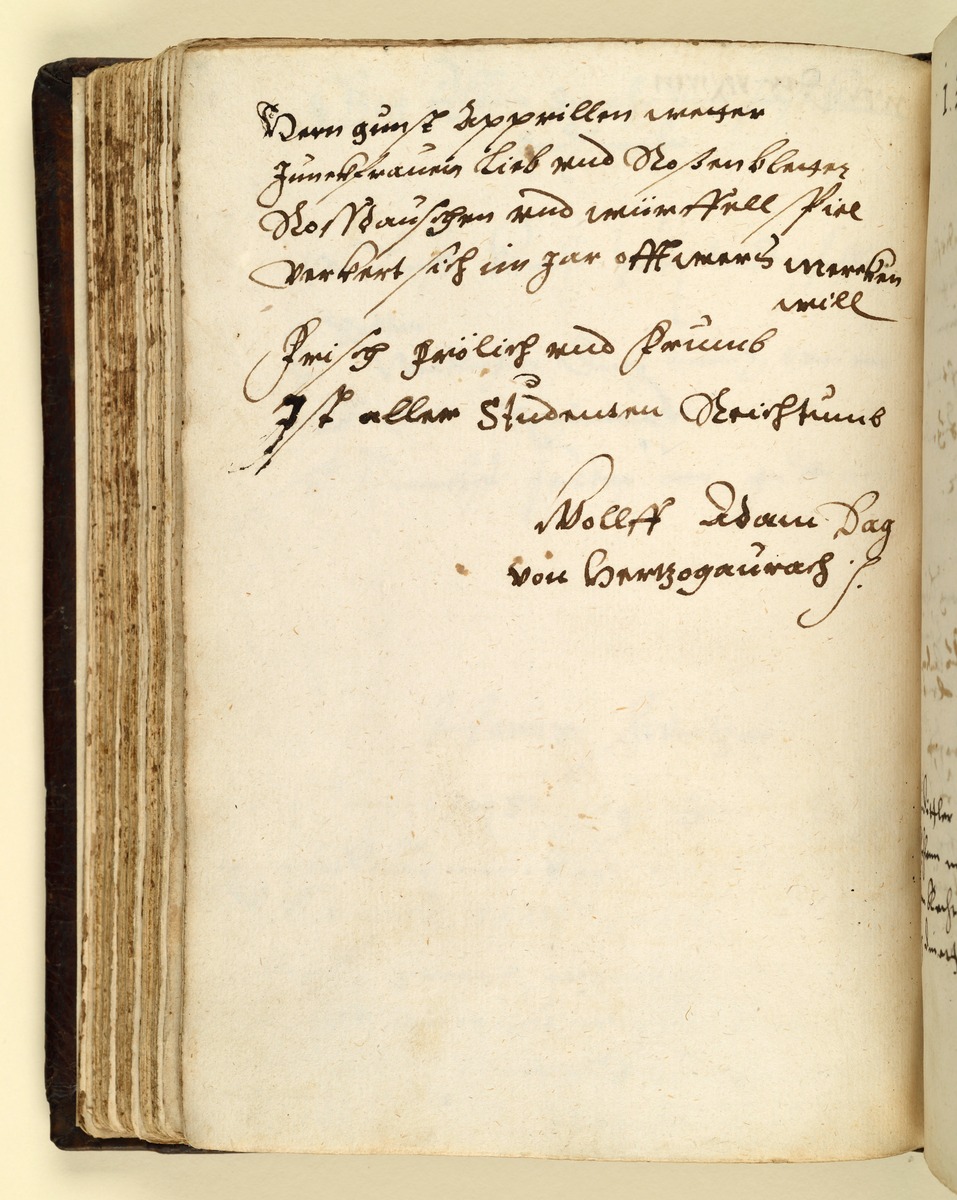 Hern gunst Apprillen wetter
Junckfrauen Lieb vnd Roßenbletter
Rossdauschen vnd würffell spiel
Verkert sich im jar offt wers mercken
will
Frisch frölich vnd frumb
Ist aller Studenten Reichtumb
Wolff Adam
von Hertzogaurach